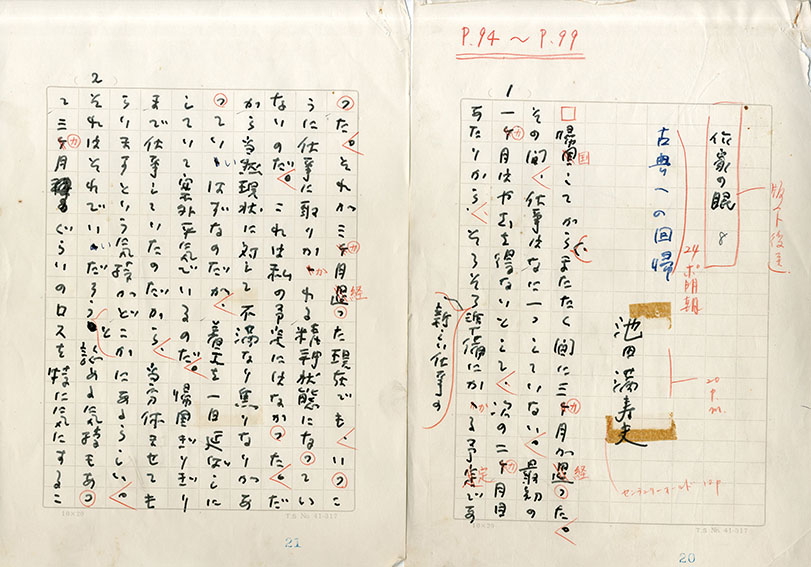 P.94 〜 P.99
作家の眼 8
版下後送
古典への回帰
24ポ明朝
池田満寿夫
20
センチュリーオールド 12P
1
帰国してからまたたく間に三ヶ月が過った。
国 カ 経
その間、仕事はなに一つしていない。最初の
一ヶ月はやむを得ないとして、次の二ヶ月目
カ カ
あたりから、そろそろ準備にかかる予定であ
か 定
新しい仕事の
10×20
T.S No. 41-317
20
2
った。それが三ヶ月過った現在でも、いっこ
カ 経
うに仕事に取りかゝれる精神状態になってい
か
ないのだ。これは私の予定にはなかった。だ
から当然現状に対して不満なり焦りなりがあ
っていいはずなのだが、着工を一日延ばしに
していて案外平気でいるのだ。帰国ぎりぎり
まで仕事していたのだから、当分休ませても
らいますという気持がどこかにあるらしい。
それはそれでいいだろうと認める気持もあっ
て三ヶ月ぐらいのロスを特に気にするこ
カ
10×20
T.S No. 41-317
21